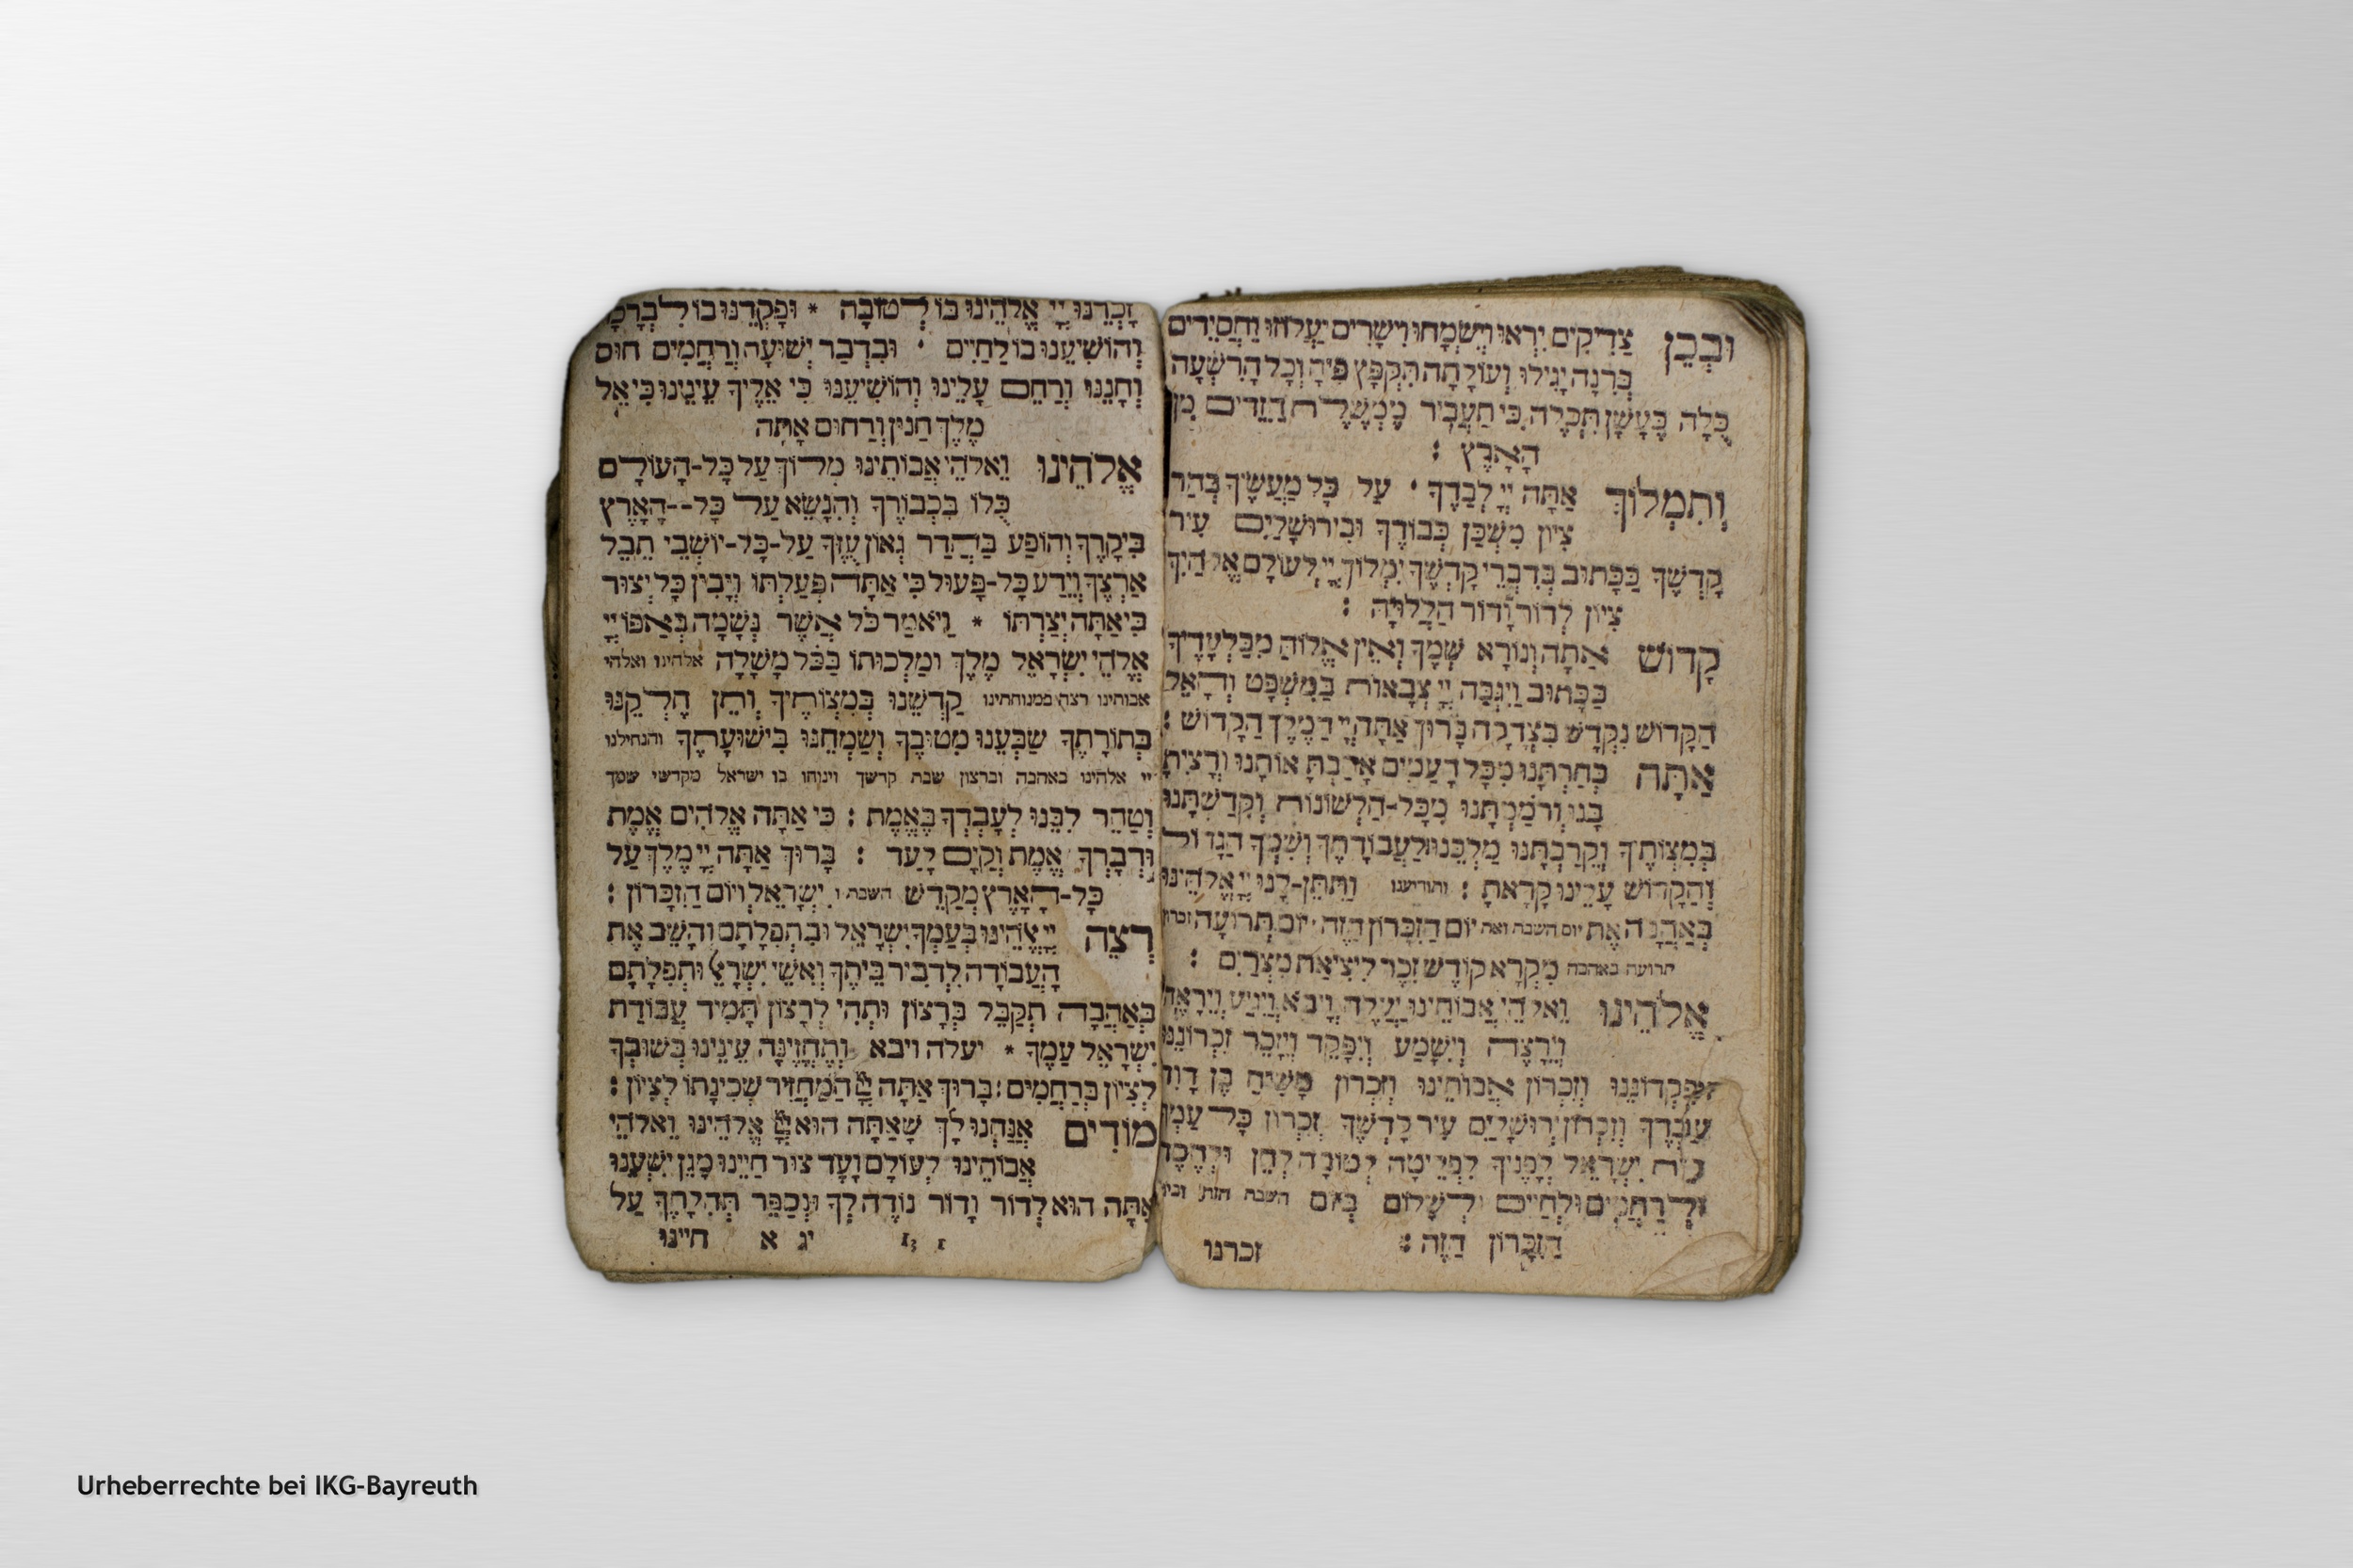 וּבְכֵן צַדִיקִים יִרְאוּ וְיִשְׂמָחוּ וִישָׁרִים יַעֲלוֹזוּ וַחֲסִידִים
בְּרִנָה יָגִילוּ וְעוֹלָתָה תִּקְפָּץ פִּיהָ וְכָל הָרִשְׁעָה
כֻּלָה בֶּעָשָׁן תִּכְלֶה כִּי תַעֲבִיר מֶמְשֶׁלֶת זָדוֹן מִן
הָאָרֶץ :
וְתִמְלוֹךְ אַתָּה יְיָ לְבַדֶךָ ׳ עַל כָּל מַעֲשֶׂיךָ בְּהַר
צִיוֹן מִשְׁכַּן כְּבוֹדֶךָ וּבִירוּשָׁלַיִם עִיר
קָדְשֶׁךָ כַּכָּתוּב בְּדִבְרֵי קָדְשֶׁךָ יִמְלוֹךְ יְיָ לְעוֹלָם אֱלֹהַיִךְ
צִיוֹן לְדוֹר וָדוֹר הַלֲלוּיָהּ :
קָדוֹשׁ אַתָּה וְנוֹרָא שְׁמֶךָ וְאֵין אֱלוֹהַּ מִבַּלְעָדֶיךָ
כַּכָּתוּב וַיִגְבַּהּ יְיָ צְבָאוֹת בַּמִשְׁפָּט וְהָאֵל
הַקָדוֹשׁ נִקְדָשׁ בִּצְדָקָה בָּרוּךְ אַתָּה יְיָ הַמֶלֶךְ הַקָדוֹשׁ :
אַתָּה בְחַרְתָּנוּ מִכָּל הָעַמִים אָהַבְתָּ אוֹתָנוּ וְרָצִיתָ
בָּנוּ וְרוֹמַמְתָּנוּ מִכָּל-הַלְשׁוֹנוֹת וְקִדַשְׁתָּנוּ
בְּמִצְוֹתֶיךָ וְקֵרַבְתָּנוּ מַלְכֵּנוּ לַעֲבוֹדָתֶךָ וְשִׁמְךָ הַגָדוֹל
וְהַקָדוֹשׁ עָלֵינוּ קָרָאתָ : ותודיענו וַתִּתֶּן-לָנוּ יְיָ אֱלֹהֵינוּ
בְּאַהֲבָה אֶת יום השבת ואת יוֹם הַזִכָּרוֹן הַזֶה ׳ יוֹם תְּרוּעָה זכרון
תרועה באהבה מִקְרָא קוֹדֶשׁ זֵכֶר לִיצִיאַת מִצְרַיִם :
אֱלֹהֵינוּ וֵאלֹהֵי אֲבוֹתֵינוּ יַעֲלֶה וְיָבֹא וְיַגִיעַ וְיֵרָאֶה
וְיֵרָצֶה וְיִשָׁמַע וְיִפָּקֵד וְיִזָכֵר זִכְרוֹנֵנוּ
וּפִקְדוֹנֵנוּ וְזִכְרוֹן אֲבוֹתֵינוּ וְזִכְרוֹן מָשִׁיחַ בֶּן דָוִד
עַבְדֶךָ וְזִכְרוֹן יְרוּשָׁלַיִם עִיר קָדְשֶׁךָ וְזִכְרוֹן כָּל עַמְךָ
בֵּית יִשְׂרָאֵל לְפָנֶיךָ לִפְלֵיטָה לְטוֹבָה לְחֵן וּלְחֶסֶד
וּלְרַחֲמִים וּלְחַיִים וּלְשָׁלוֹם בְּיוֹם השבת הזה וביו
הַזִכָּרוֹן הַזֶה : זכרנו
זָכְרֵנוּ יְיָ אֱלֹהֵינוּ בּוֹ לְטוֹבָה * וּפָקְדֵנוּ בוֹ לִבְרָכָה
וְהוֹשִׁיעֵנוּ בוֹ לַחַיִים ׳ וּבִדְבַר יְשׁוּעָה וְרַחֲמִים חוּס
וְחָנֵנוּ וְרַחֵם עָלֵינוּ וְהוֹשִׁיעֵנוּ כִּי אֵלֶיךָ עֵינֵינוּ כִּי אֵל
מֶלֶךְ חַנוּן וְרַחוּם אָתָּה
אֱלֹהֵינוּ וֵאלֹהֵי אֲבוֹתֵינוּ מְלוֹךְ עַל כָּל-הָעוֹלָם
כֻּלוֹ בִּכְבוֹדֶךָ וְהִנָשֵׂא עַל כָּל--הָאָרֶץ
בִּיקָרֶךָ וְהוֹפַע בַּהֲדַר גְאוֹן עֻזֶךָ עַל-כָּל-יוֹשְׁבֵי תֵבֵל
אַרְצֶךָ וְיֵדַע כָּל-פָּעוּל כִּי אַתָּה פְּעַלְתּוֹ וְיָבִין כָּל יְצוּר
כִּי אַתָּה יְצַרְתּוֹ * וַיֹאמַר כֹּל אֲשֶׁר נְשָׁמָה בְּאַפּוֹ יְיָ
אֱלֹהֵי יִשְׂרָאֵל מֶלֶךְ וּמַלְכוּתוֹ בַּכֹּל מָשָׁלָה אלהינו ואלהי
אבותינו רצה במנוחתינו קַדְשֵׁנוּ בְּמִצְוֹתֶיךָ וְתֵן חֶלְקֵנוּ
בְּתוֹרָתֶךָ שַׂבְּעֵנוּ מִטוּבֶךָ וְשַׂמְחֵנוּ בִּישׁוּעָתֶךָ והנחילנו
יי אלהינו באהבה וברצון שבת קדשך וינוחו בו ישראל מקדשי שמך
וְטַהֵר לִבֵּנוּ לְעָבְדְךָ בֶּאֱמֶת : כִּי אַתָּה אֱלֹהִים אֱמֶת
וּדְבָרְךָ אֱמֶת וְקַיָם לָעַד : בָּרוּךְ אַתָּה יְיָ מֶלֶךְ עַל
כָּל-הָאָרֶץ מְקַדֵשׁ השבת ו יִשְׂרָאֵל וְיוֹם הַזִכָּרוֹן :
רְצֵה יְיָ אֱלֹהֵינוּ בְּעַמְךָ יִשְׂרָאֵל וּבִתְפִלָתָם וְהָשֵׁב אֶת
הָעֲבוֹדָה לִדְבִיר בֵּיתֶךָ וְאִשֵׁי יִשְׂרָאֵל וּתְפִלָתָם
בְּאַהֲבָה תְקַבֵּל בְּרָצוֹן וּתְהִי לְרָצוֹן תָּמִיד עֲבוֹדַת
יִשְׂרָאֵל עַמֶךָ * יעלה ויבא וְתֶחֱזֶינָה עֵינֵינוּ בְּשׁוּבְךָ
לְצִיוֹן בְּרַחֲמִים : בָּרוּךְ אַתָּה יְיָ הַמַחֲזִיר שְׁכִינָתוֹ לְצִיוֹן :
מוֹדִים אֲנַחְנוּ לָךְ שָׁאַתָּה הוּא יְיָ אֱלֹהֵינוּ וֵאלֹהֵי
אֲבוֹתֵינוּ לְעוֹלָם וָעֶד צוּר חַיֵינוּ מָגֵן יִשְׁעֵנוּ
אַתָּה הוּא לְדוֹר וָדוֹר נוֹדֶה לְךָ וּנְסַפֵּר תְּהִלָתֶךָ עַל
יג א חיינו
Urheberrechte bei IKG-Bayreuth